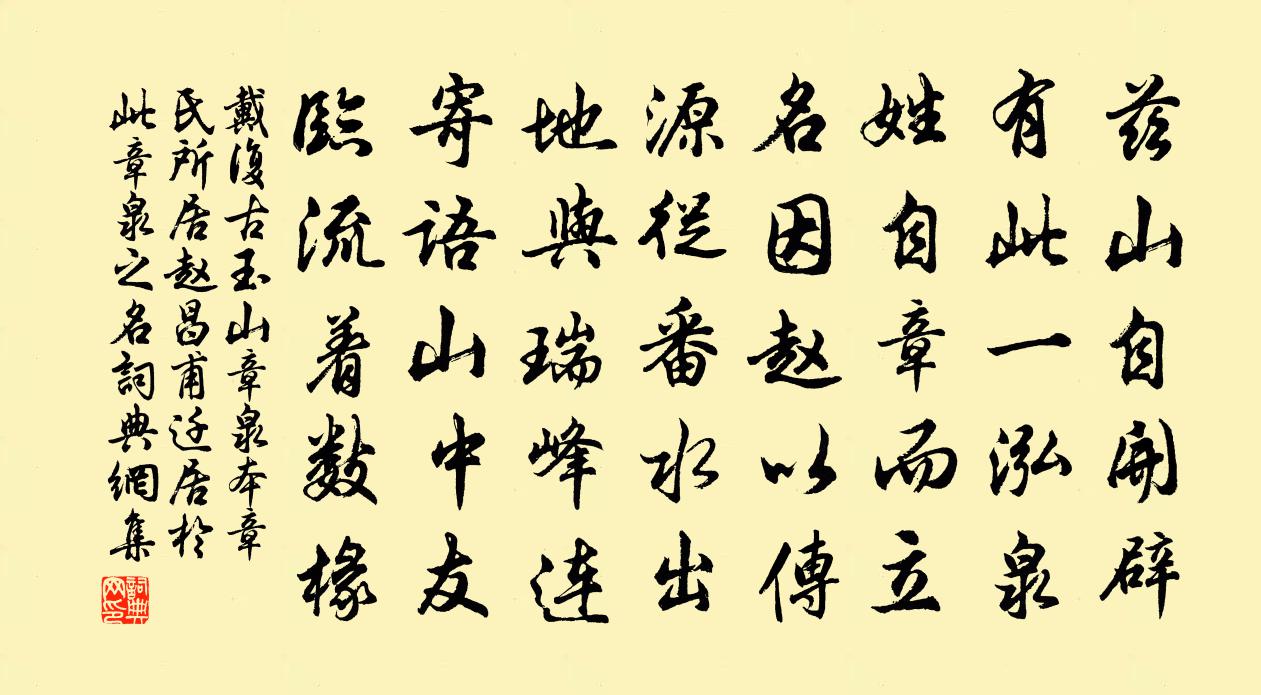 茲山自開辟
有此一泓泉
姓自章而立
名因赵以傳
源從番水出
地與瑞峰連
寄語山中友
臨流着數椽
戴復古玉山章泉本章
氏所居赵昌甫迁居於
此章泉之名詞典網集
詞典网印